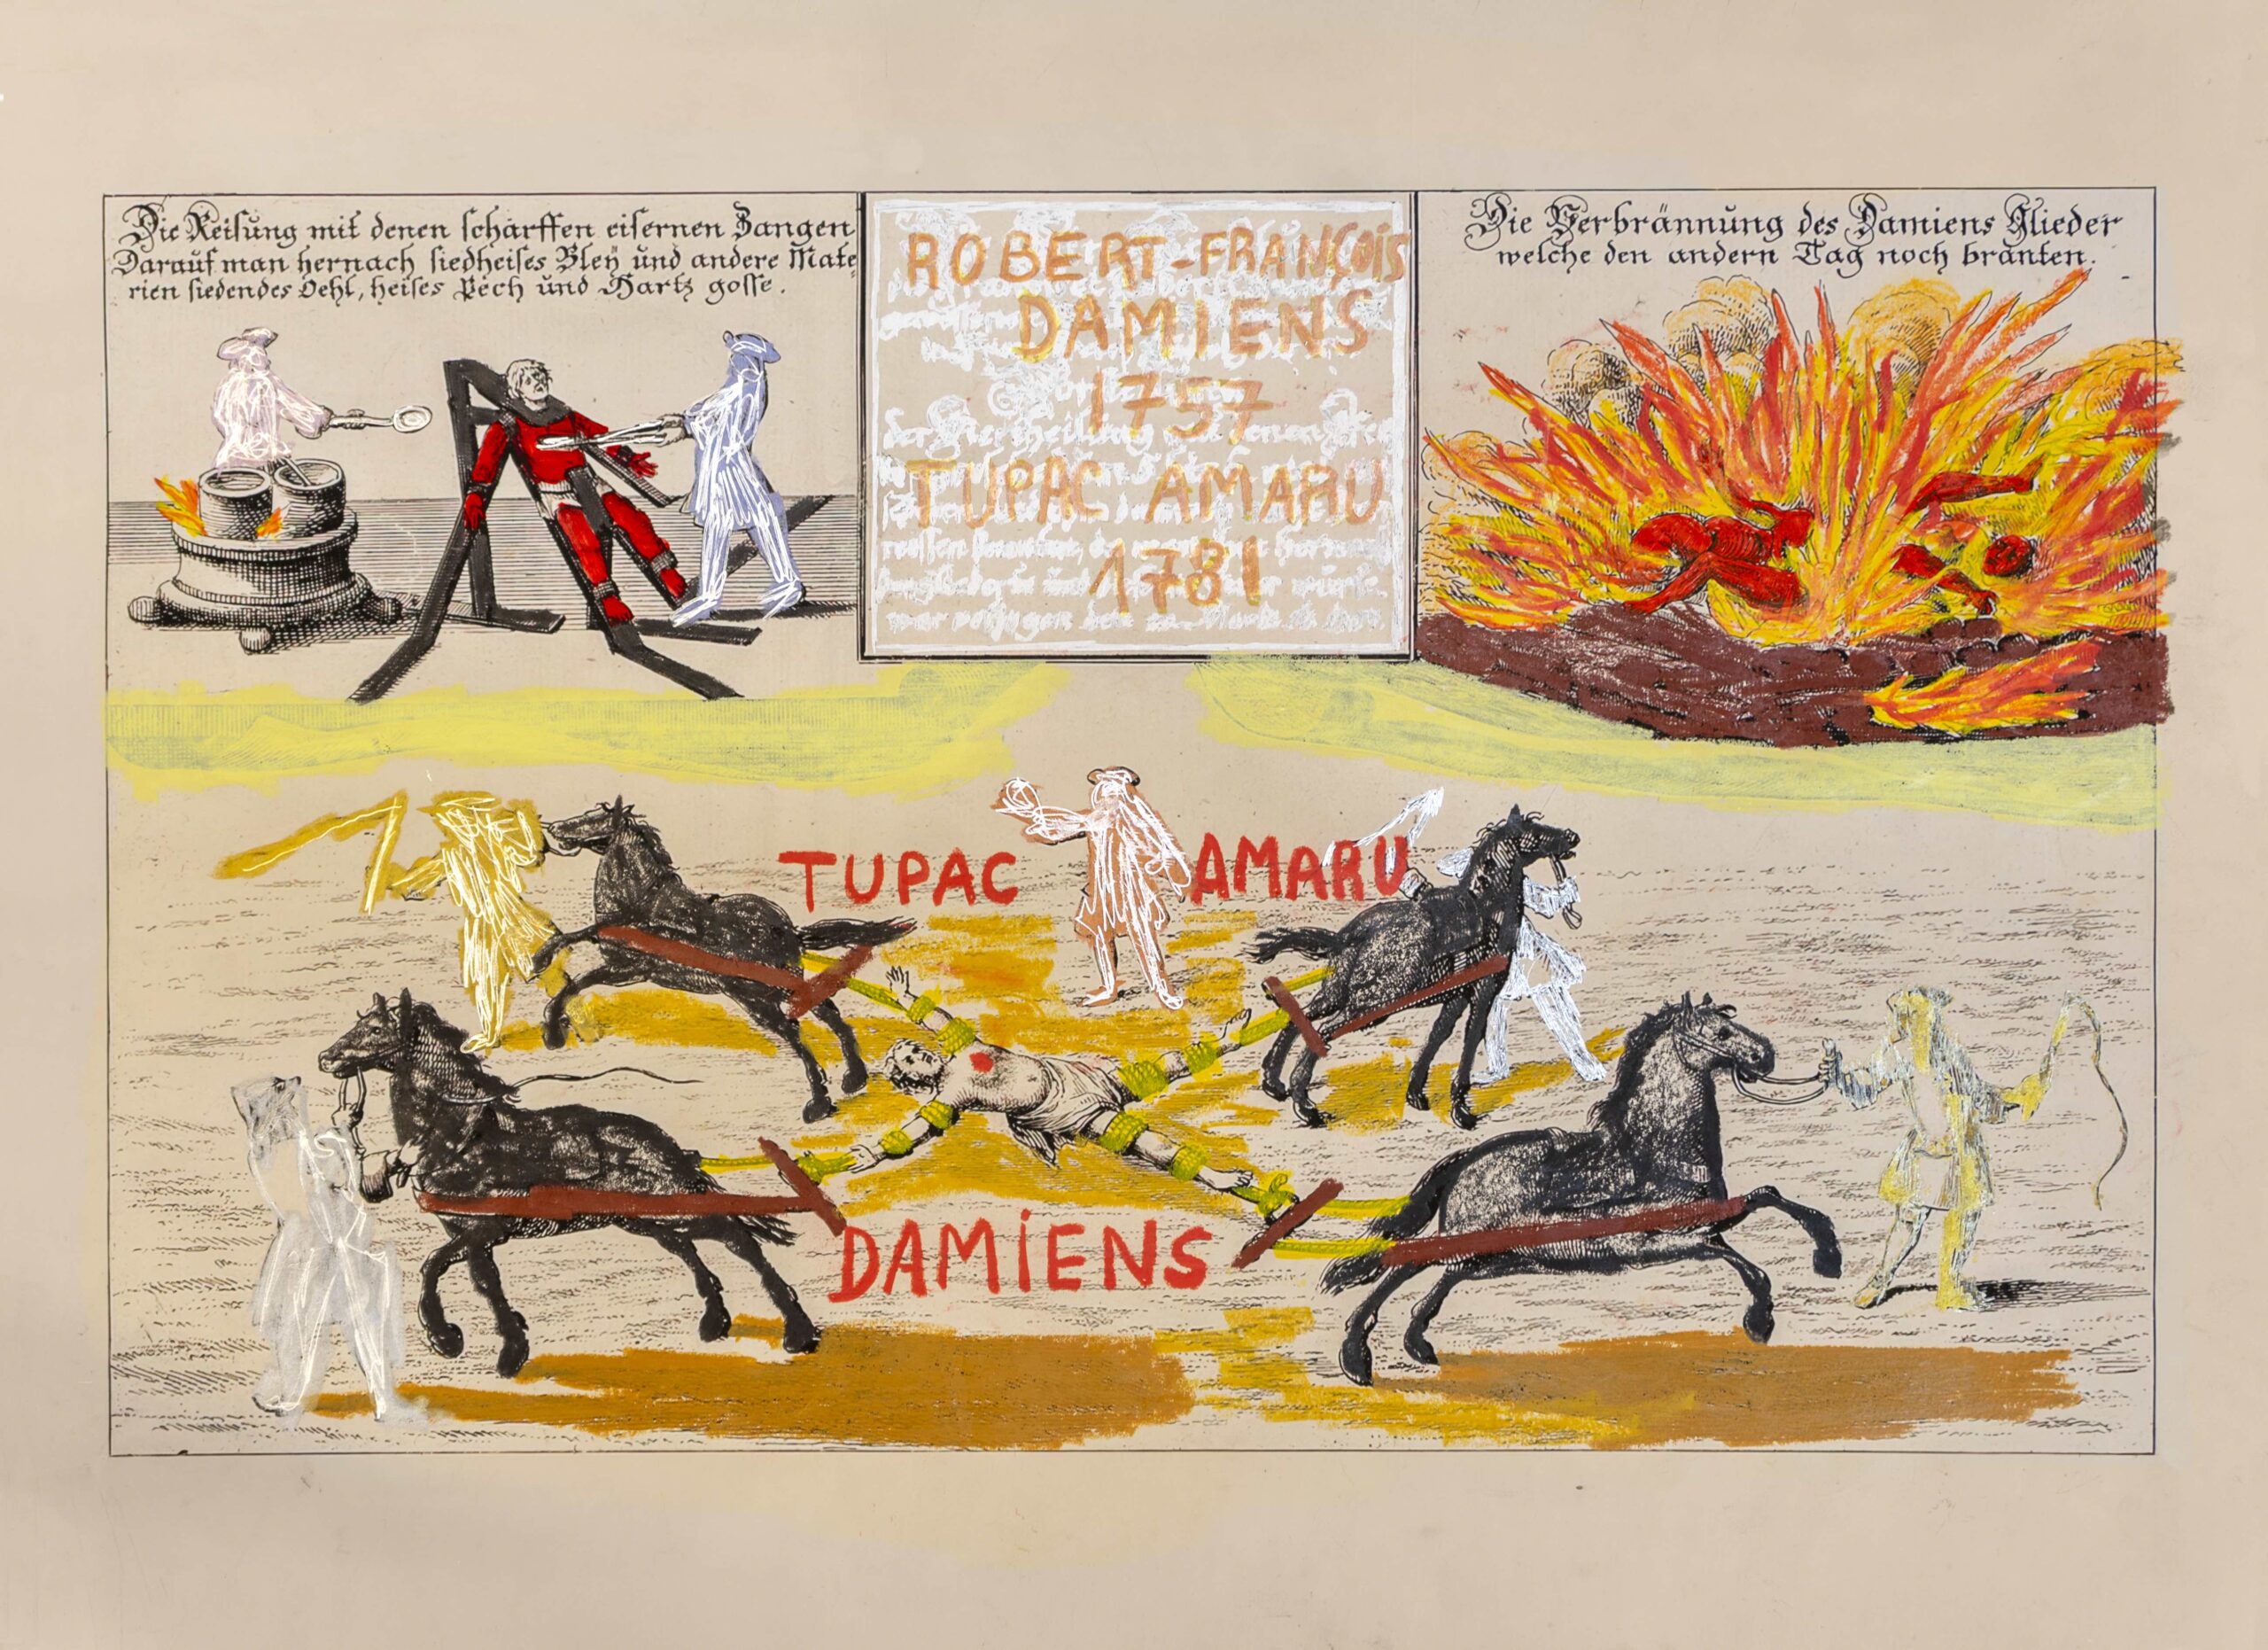 Die Reisung mit denen scharffen eisernen Zangen
Darauf man hernach siedheises Bleÿ und andere Mate⸗
rien siedendes Oehl, heises Pech und Hartz gosse.
ROBERT-FRANÇOiS
DAMIENS
1757
TUPAC AMARU
1781
Die Verbrännung des Damiens Glieder
welche den andern Tag noch branten.
TUPAC AMARU
DAMiENS